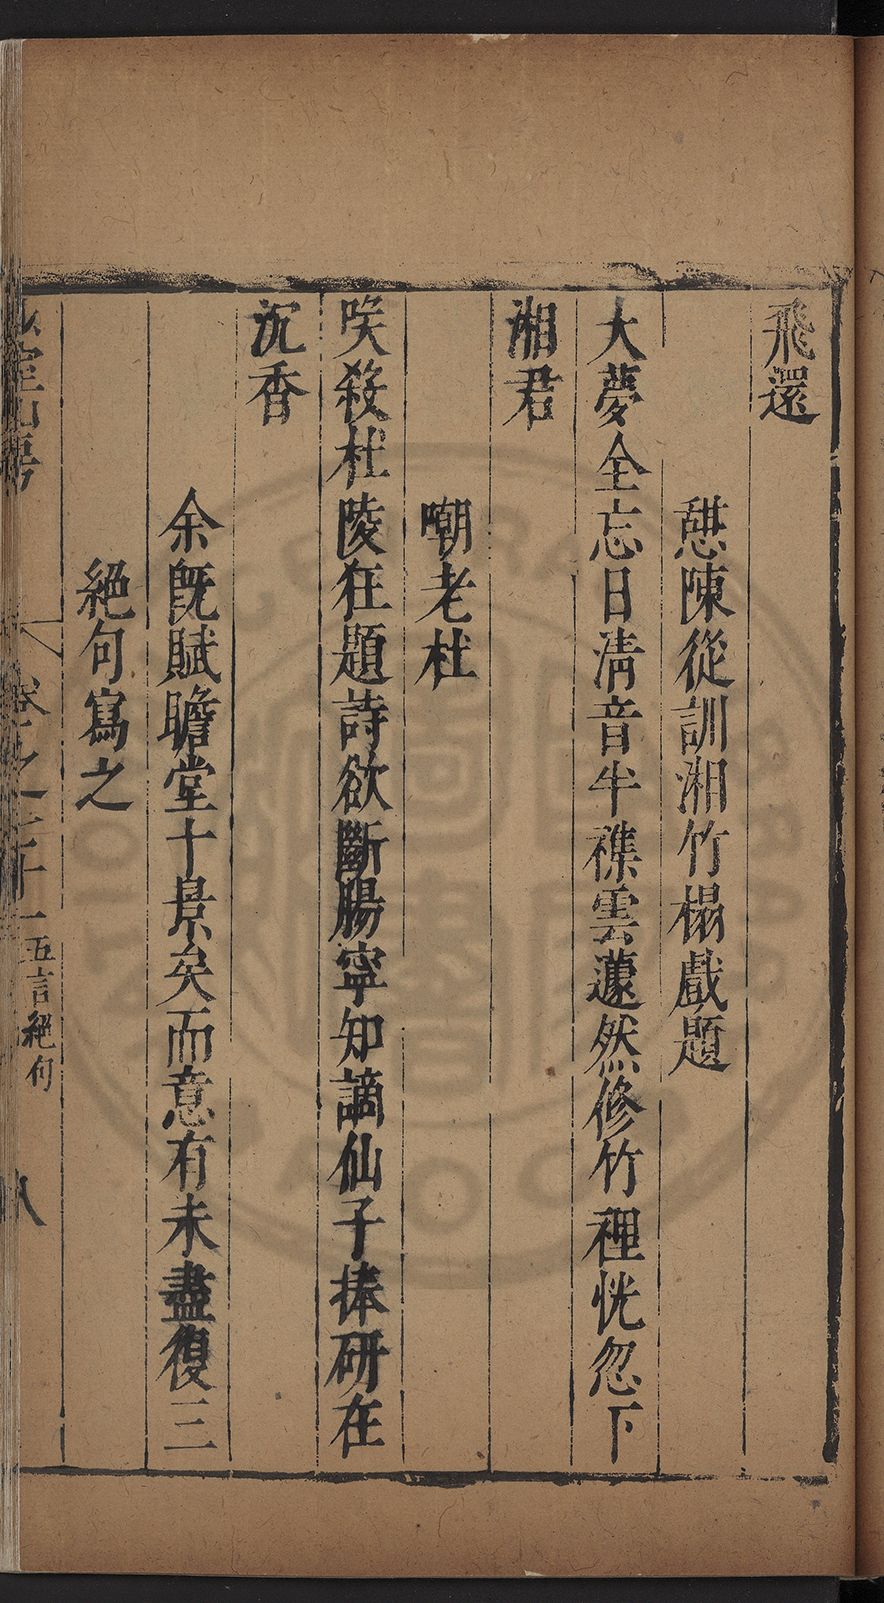 飛還
憇陳從訓湘竹榻戲題
大夢全忘日清音半襍雲蘧然修竹裡恍忽下
湘君
嘲老杜
唉殺杜陵狂題詩欲斷腸寧知謫仙子捧研在
沉香
余旣賦瞻堂十景矣而意有未盡復三
絕句寫之
卷之二十一 五言絕句 八